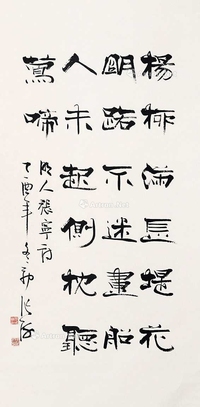 楊柳滿長堤花
明路不迷畫船
人未起側枕聽
鶯啼
明人張寧詩
丁酉年冬初